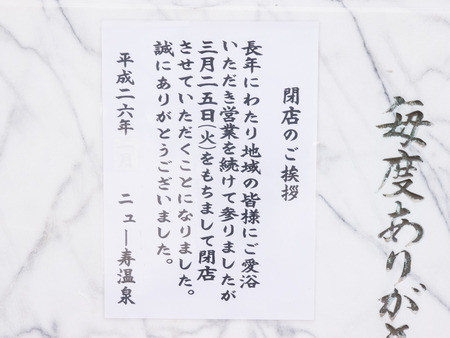 閉店のご挨拶
長年にわたり地域の皆様にご愛浴
いただき営業を続けて参りましたが
三月二五日(火)をもちまして閉店
させていただくことになりました。
誠にありがとうございました。
平成二六年 ニュー寿温泉
毎度ありがと